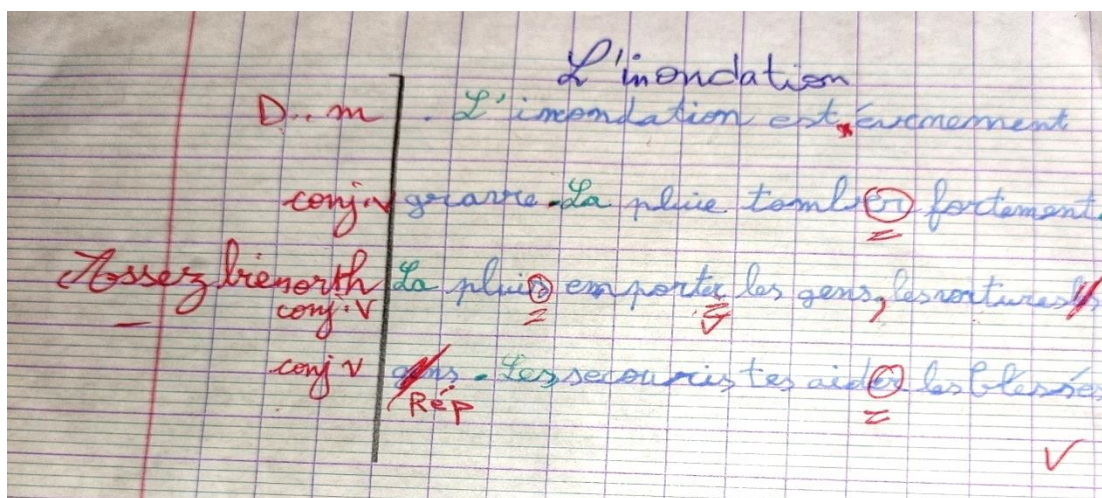 L'inondation
D..m . L'inondation est, évenement
conj.v grave. La pluie tomber fortement.
Assez bien orth La pluis emporter les gens, les voitures les
conj.v
conj v gens. Les secouristes aider les blessés
Rép